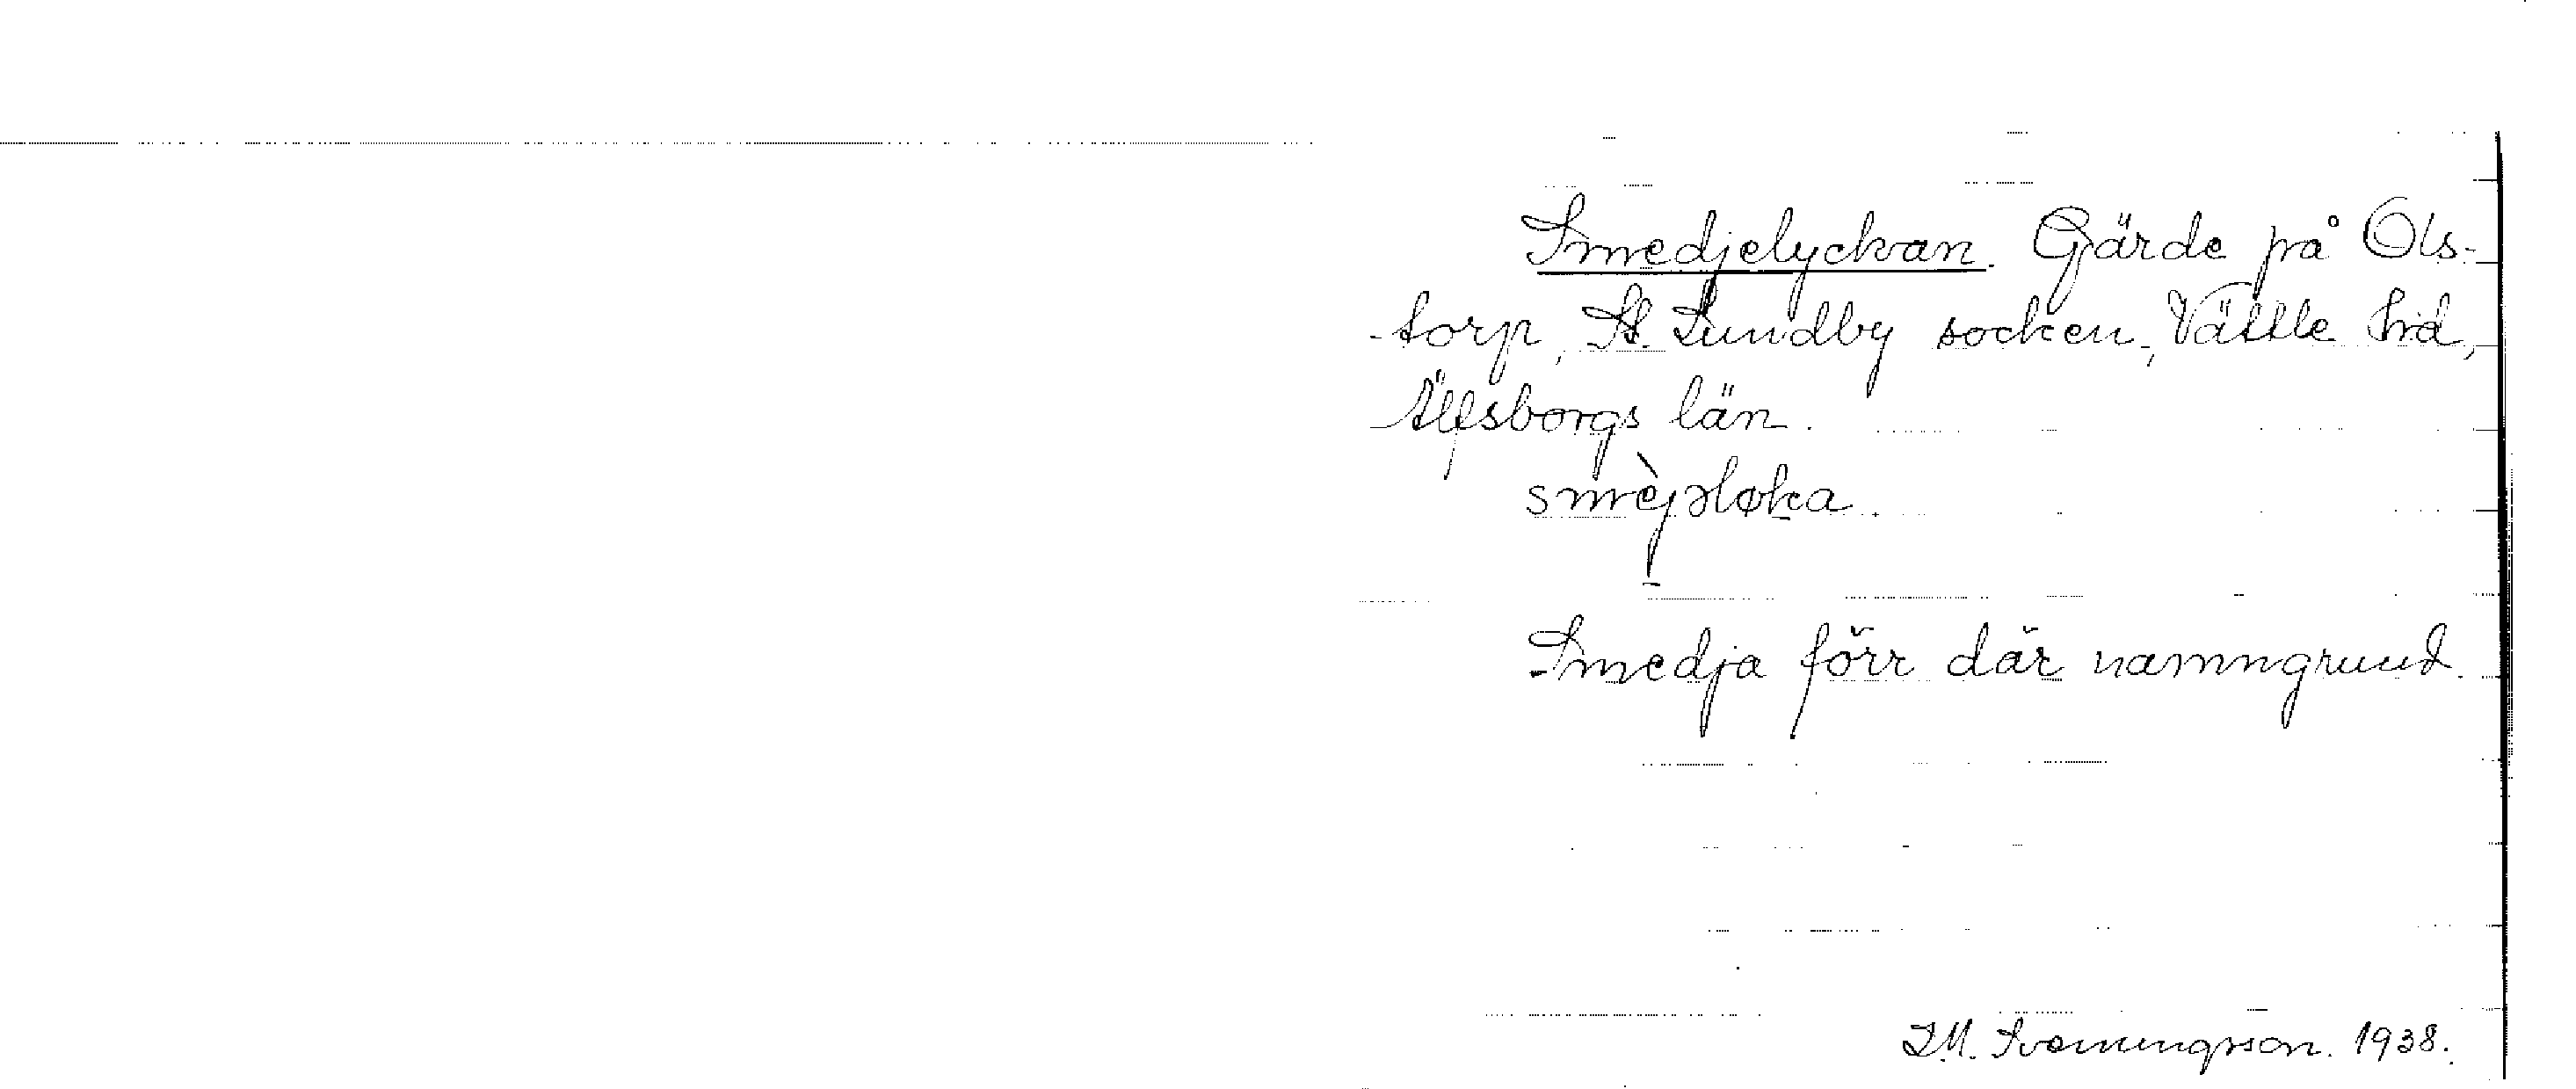 Smedjelyckan. Gärde på Ols-
-torp, St. Lundby socken, Vättle hrd,
Älfsborgs län.
smèjəløka.
Smedja förr där namngrund.
J.M. Svenningsson. 1938.